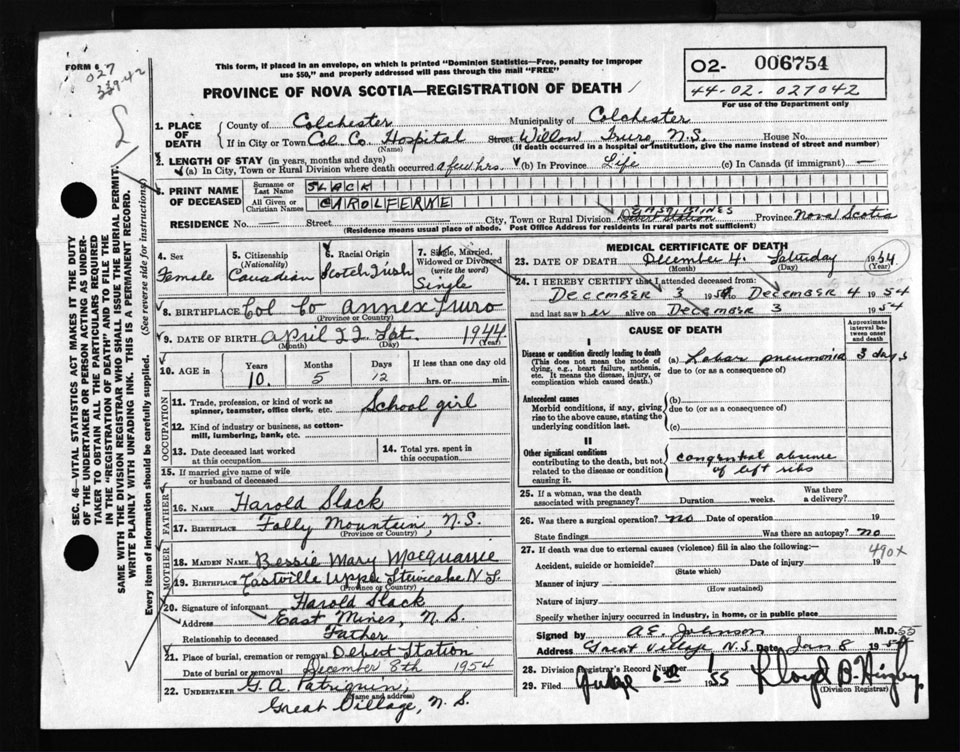 FORM 6
027
339-42
This form, if placed in an envelope, on which is printed "Dominion Statistics—Free, penalty for improper
use $50," and properly addressed will pass through the mail "FREE"
PROVINCE OF NOVA SCOTIA—REGISTRATION OF DEATH
O2- 006754
44-02-027042
For use of the Department only
1. PLACE OF DEATH
County of Colchester Municipality of Colchester
If in City or Town Col. Co. Hospital Street Willow Truro, N.S. House No.
(Name) (If death occurred in a hospital or institution, give the name instead of street and number)
2. LENGTH OF STAY (in years, months and days)
(a) In City, Town or Rural Division where death occurred a few hrs. (b) In Province Life (c) In Canada (if immigrant) —
3. PRINT NAME OF DECEASED
Surname or Last Name SLACK
All Given or Christian Names CAROL FERNE
RESIDENCE No. Street City, Town or Rural Division EAST MINES Debert Station Province Nova Scotia
(Residence means usual place of abode. Post Office Address for residents in rural parts not sufficient)
4. Sex Female
5. Citizenship (Nationality) Canadian
6. Racial Origin Scotch Irish
7. Single, Married, Widowed or Divorced (write the word) Single
8. BIRTHPLACE Col Co Annex Truro
(Province or Country)
9. DATE OF BIRTH April 22 Sat. 1944
(Month) (Day) (Year)
10. AGE in Years 10. Months 5 Days 12 If less than one day old hrs. or min.
OCCUPATION
11. Trade, profession, or kind of work as spinner, teamster, office clerk, etc. School girl
12. Kind of industry or business, as cotton-mill, lumbering, bank, etc.
13. Date deceased last worked at this occupation
14. Total yrs. spent in this occupation
15. If married give name of wife or husband of deceased
FATHER
16. NAME Harold Slack
17. BIRTHPLACE Folly Mountain, N.S.
(Province or Country)
MOTHER
18. MAIDEN NAME Bessie Mary Macquarrie
19. BIRTHPLACE Eastville Upper Stewiacke N.S.
(Province or Country)
20. Signature of informant Harold Slack
Address East Mines, N.S.
Relationship to deceased Father
21. Place of burial, cremation or removal Debert Station
Date of burial or removal December 8th 1954
22. UNDERTAKER G. A. Patriquin,
(Name and address)
Great Village, N.S.
MEDICAL CERTIFICATE OF DEATH
23. DATE OF DEATH December 4. Saturday 1954
(Month) (Day) (Year)
24. I HEREBY CERTIFY that I attended deceased from:
DECEMBER 3 1954 to DECEMBER 4 1954
and last saw her alive on DECEMBER 3 1954
CAUSE OF DEATH
Approximate interval between onset and death
I
Disease or condition directly leading to death
(This does not mean the mode of dying, e.g., heart failure, asthenia, etc. It means the disease, injury, or complication which caused death.)
(a) Lobar pneumonia 3 days
due to (or as a consequence of)
Antecedent causes
Morbid conditions, if any, giving rise to the above cause, stating the underlying condition last.
(b)
due to (or as a consequence of)
(c)
II
Other significant conditions
contributing to the death, but not related to the disease or condition causing it.
congenital absence
of left ribs
25. If a woman, was the death associated with pregnancy? Duration weeks. Was there a delivery?
26. Was there a surgical operation? no Date of operation 19
State findings Was there an autopsy? no
27. If death was due to external causes (violence) fill in also the following:— 490x
Accident, suicide or homicide? Date of injury 19
(State which)
Manner of injury
(How sustained)
Nature of injury
Specify whether injury occurred in industry, in home, or in public place
Signed by A.E. Johnson M.D. 55
Address Great Village, N.S. Date Jan 8 19
28. Division Registrar's Record Number 1
29. Filed 1955 Lloyd B.
(Division Registrar)
SEC. 46—VITAL STATISTICS ACT MAKES IT THE DUTY
OF THE UNDERTAKER OR PERSON ACTING AS UNDER-
TAKER TO OBTAIN ALL THE PARTICULARS REQUIRED
IN THE "REGISTRATION OF DEATH" AND TO FILE THE
SAME WITH THE DIVISION REGISTRAR WHO SHALL ISSUE THE BURIAL PERMIT.
WRITE PLAINLY WITH UNFADING INK. THIS IS A PERMANENT RECORD.
Every item of information should be carefully supplied. (See reverse side for instructions)